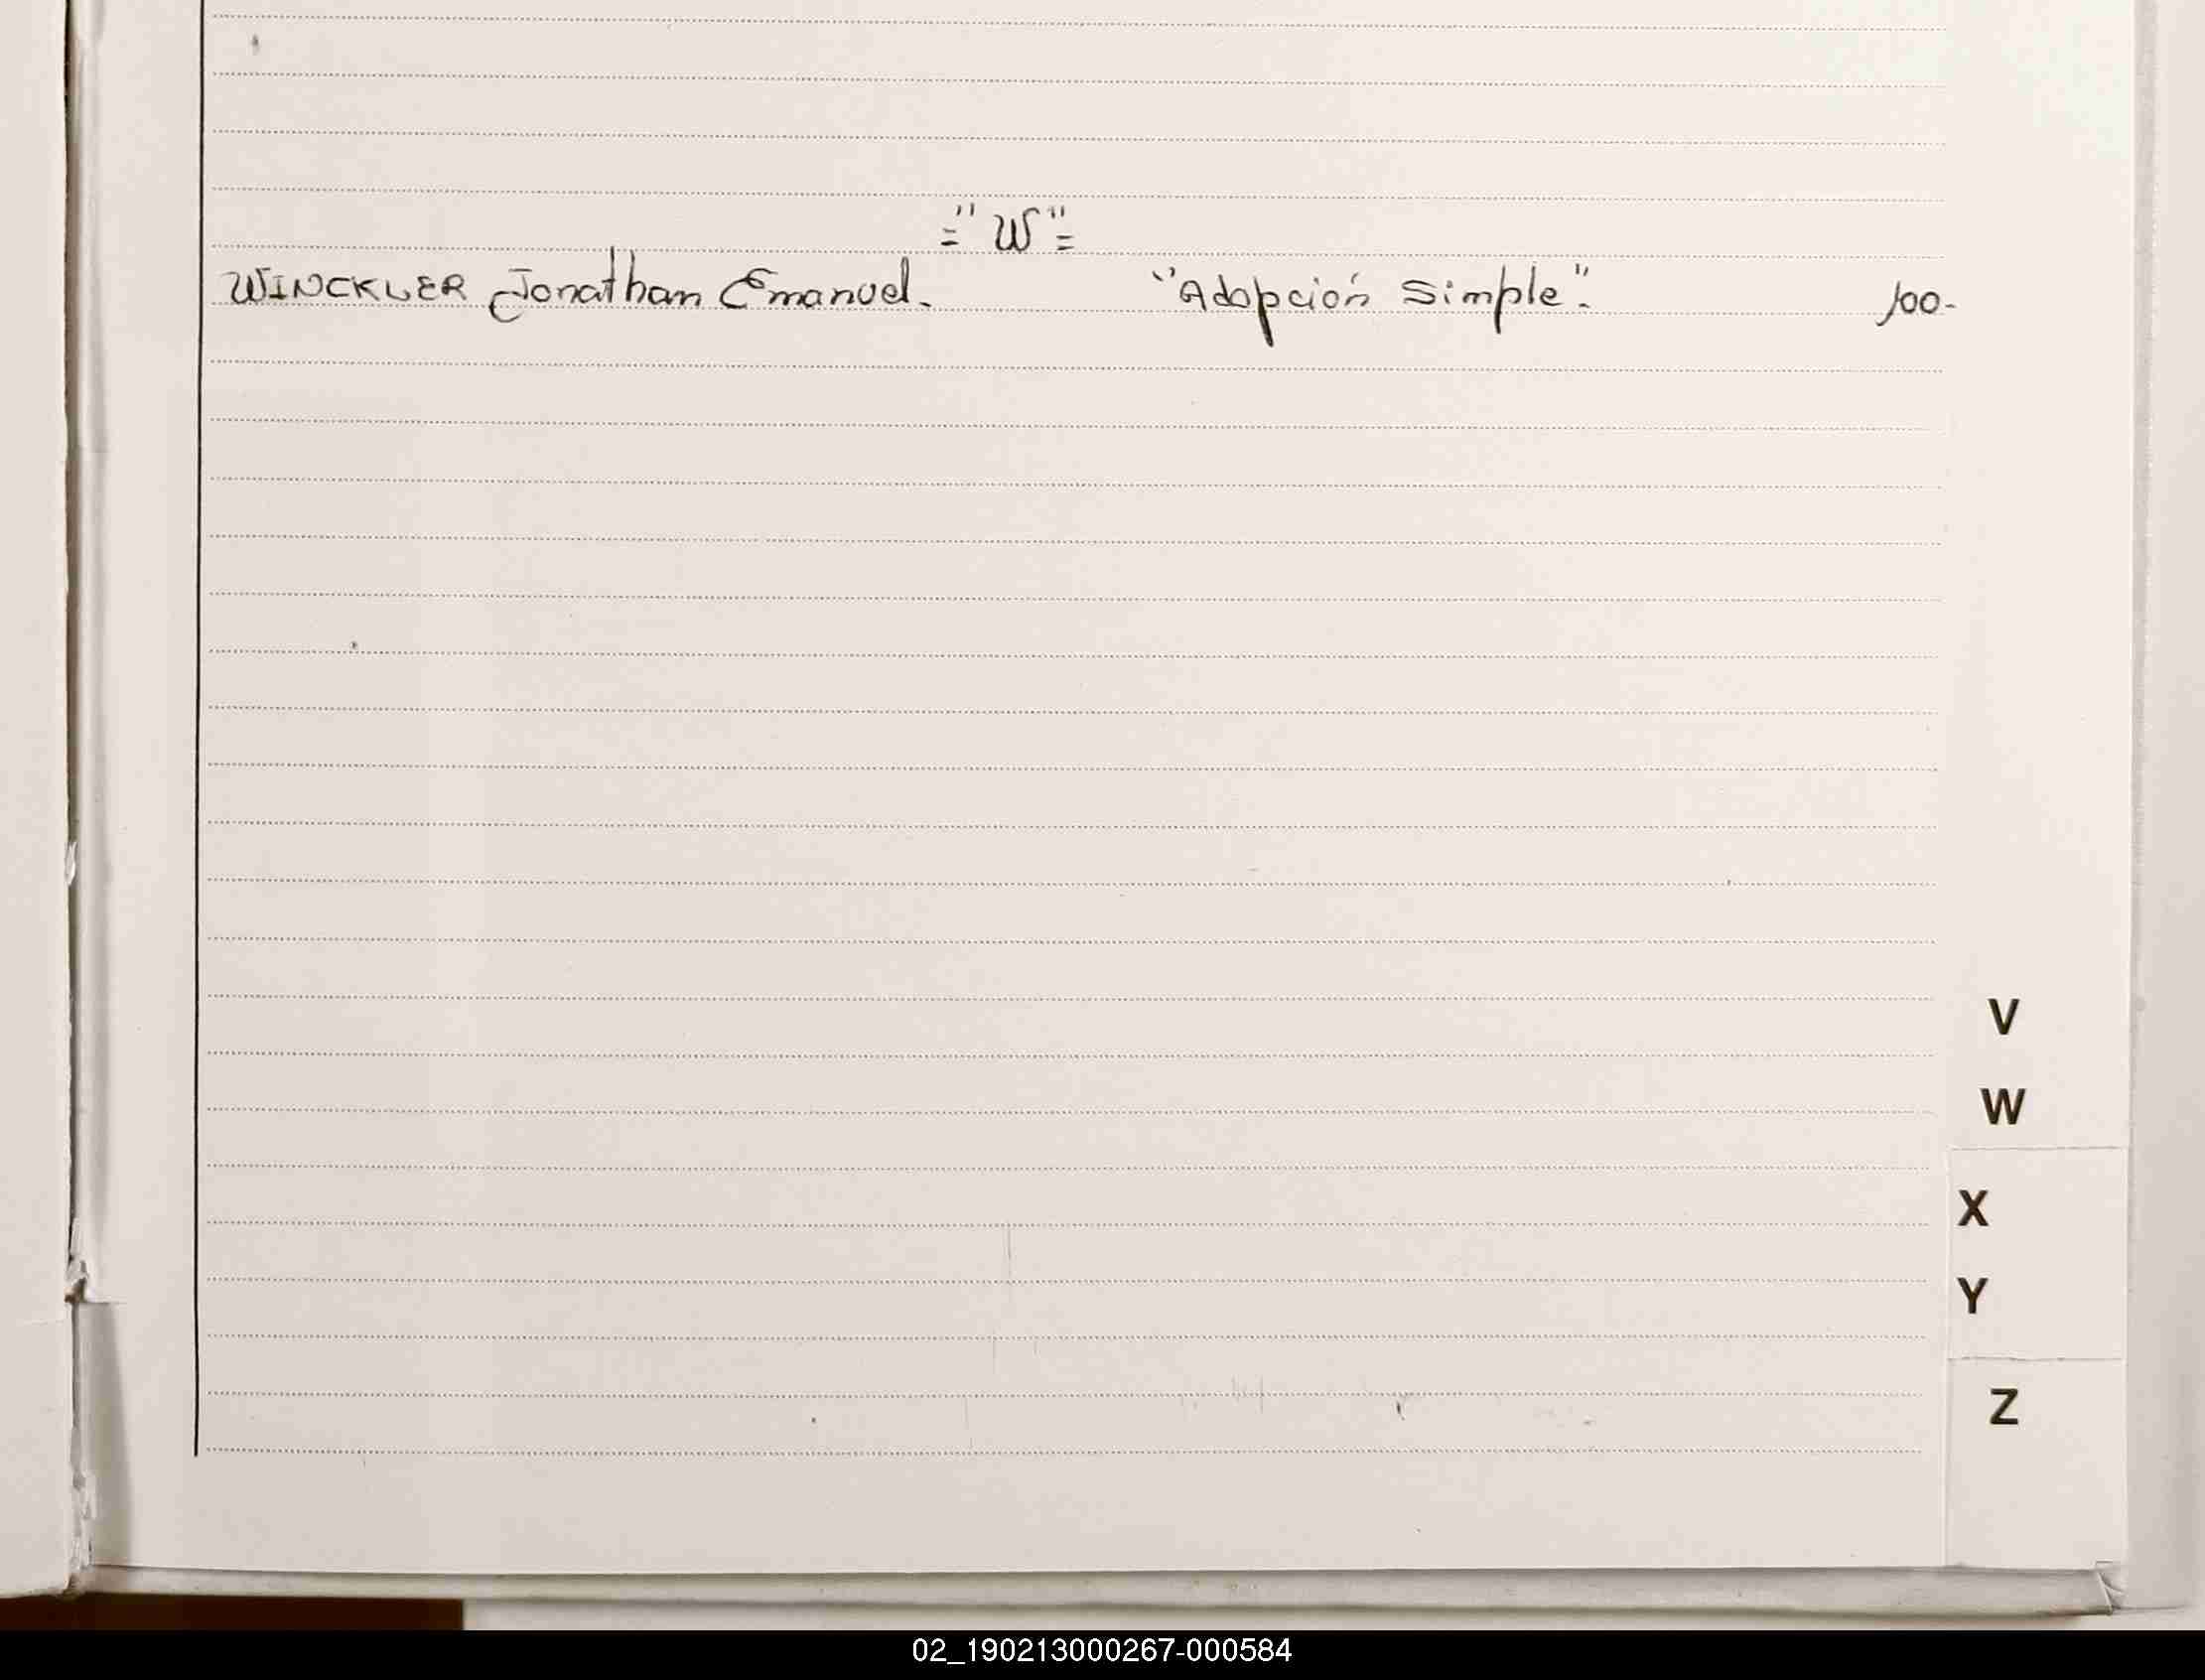 ="W"=
WINCKLER Jonathan Emanuel. "Adopción Simple". 100-
V
W
X
Y
Z
02_190213000267-000584